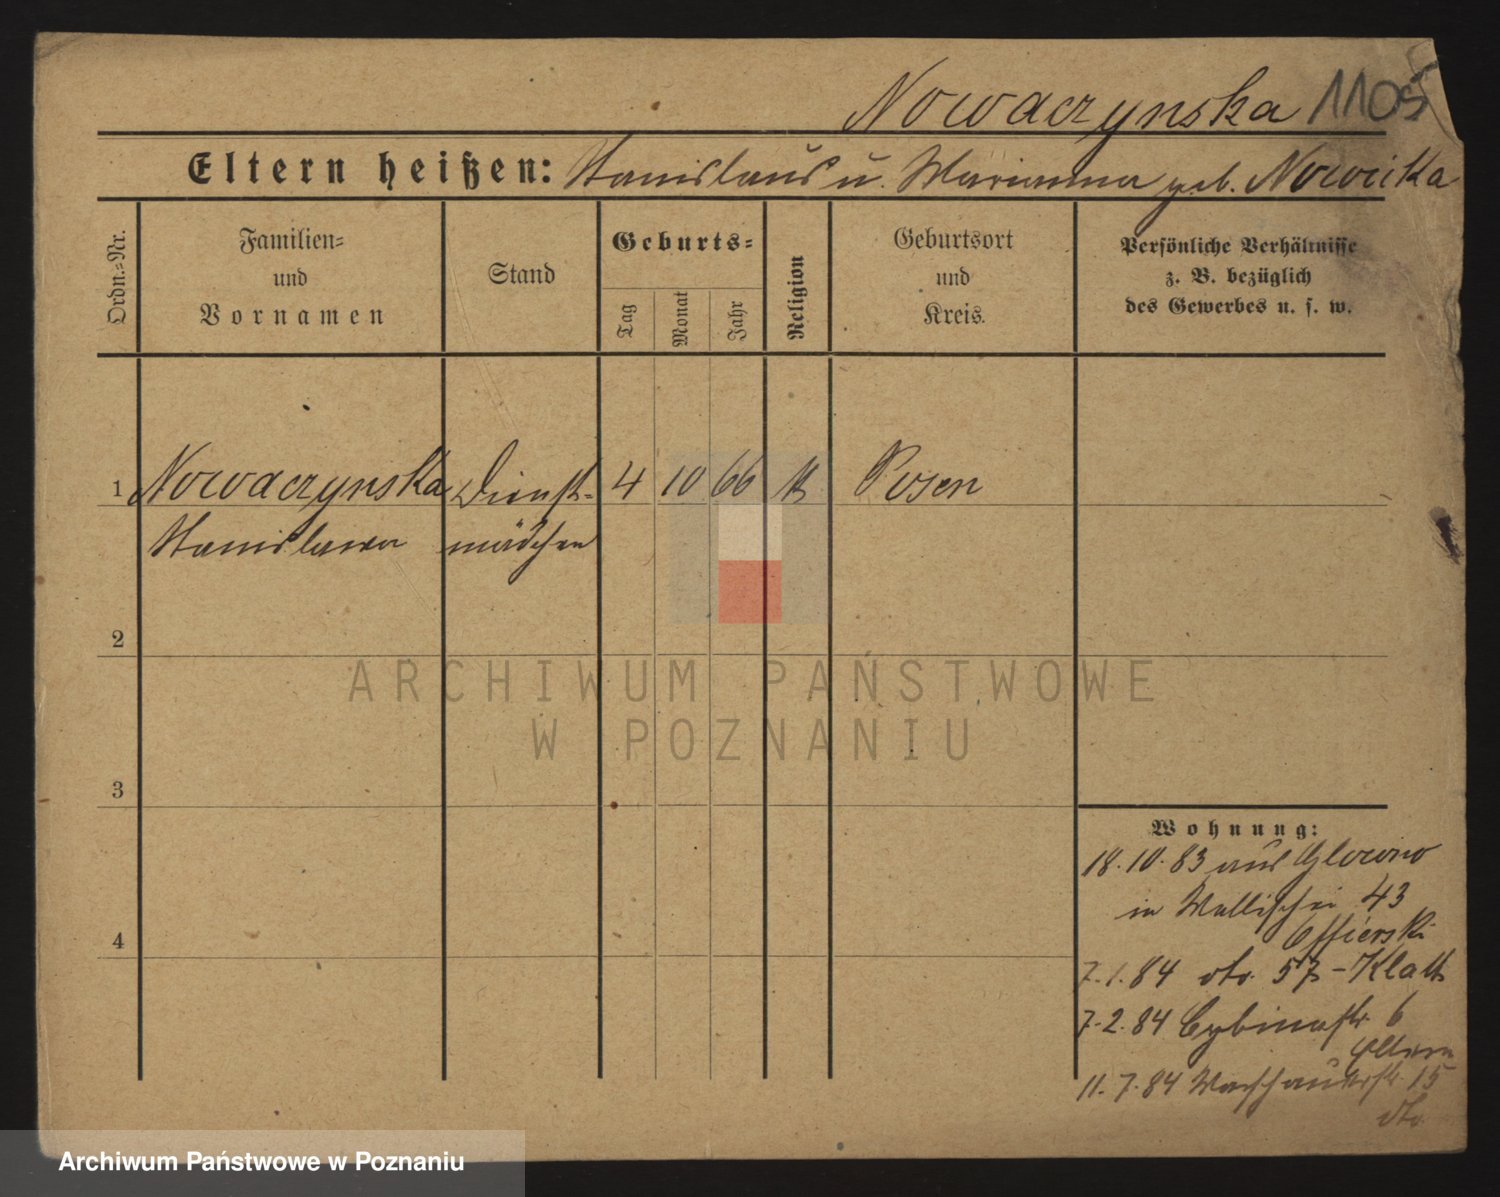 Nowaczynska 1105
Eltern heißen: Stanislaus u. Marianna geb. Nowicka
Ordn.=Nr.
Familien=
und
Vornamen
Stand
Geburts=
Tag
Monat
Jahr
Religion
Geburtsort
und
Kreis.
Persönliche Verhältnisse
z. B. bezüglich
des Gewerbes u. s. w.
1 Nowaczynska Dienst= 4 10 66 K Posen
Stanislawa mädchen
2
ARCHIWUM PAŃSTWOWE
W POZNANIU
3
Wohnung:
18.10.83 aus Glowno
in Wallischei 43
4
7.1.84 dto. 57 - Klatt
7.2.84 Cybinastr. 6
Eltern
11.7.84 Warschauerstr. 15
dto.
Archiwum Państwowe w Poznaniu